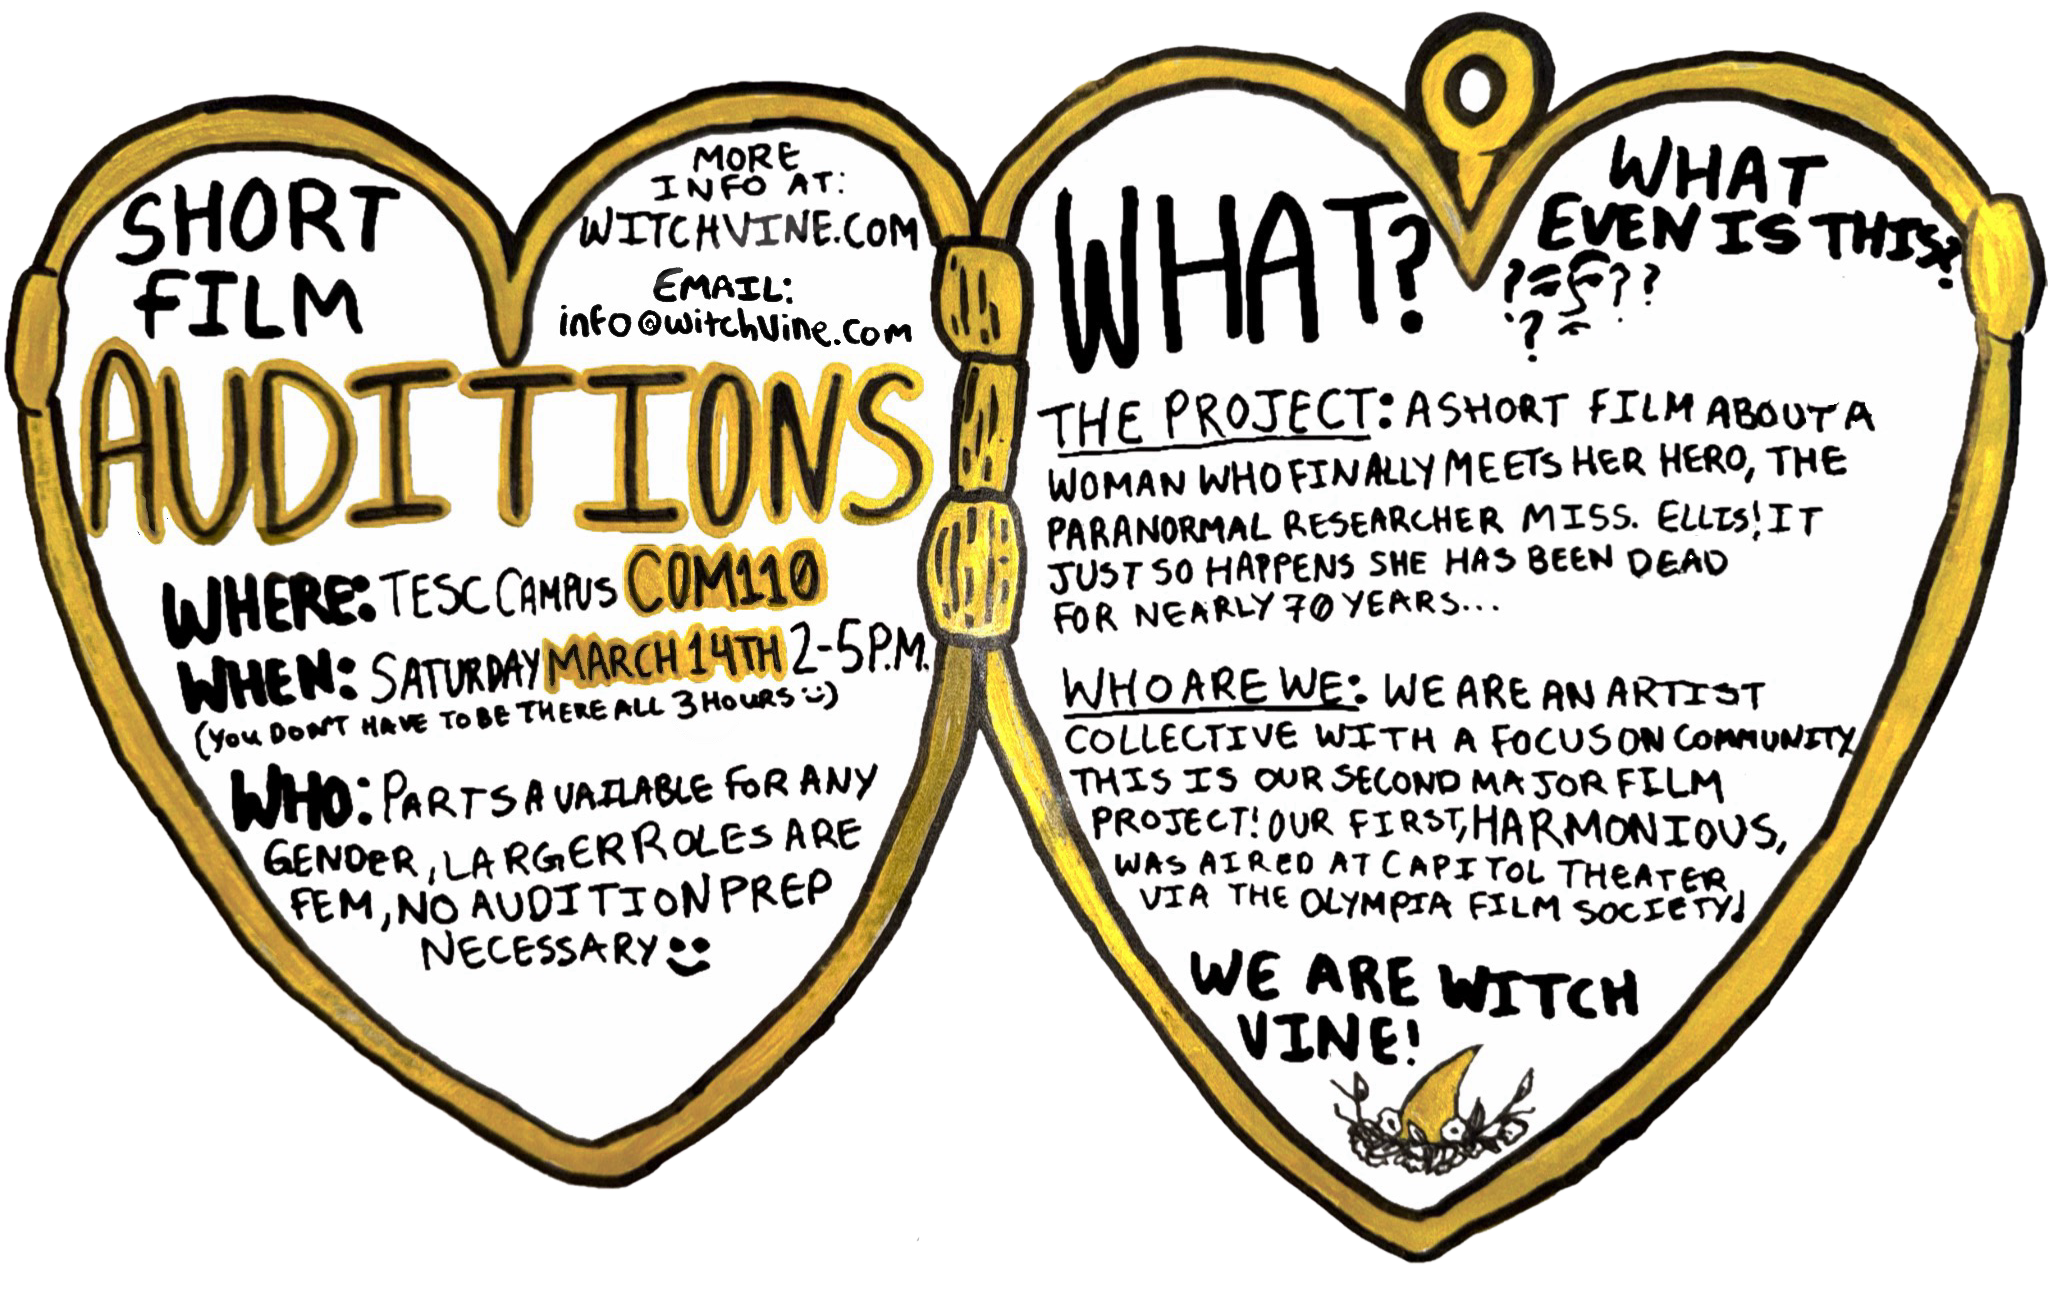 SHORT
FILM
MORE
INFO AT:
WITCHVINE.COM
EMAIL:
info@witchvine.com
AUDITIONS
WHERE: TESC CAMPUS COM110
WHEN: SATURDAY MARCH 14TH 2-5P.M.
(YOU DON'T HAVE TO BE THERE ALL 3 HOURS :))
WHO: PARTS AVAILABLE FOR ANY
GENDER, LARGER ROLES ARE
FEM, NO AUDITION PREP
NECESSARY :)
WHAT?
WHAT
EVEN IS THIS?
? ? ?
?
THE PROJECT: A SHORT FILM ABOUT A
WOMAN WHO FINALLY MEETS HER HERO, THE
PARANORMAL RESEARCHER MISS. ELLIS! IT
JUST SO HAPPENS SHE HAS BEEN DEAD
FOR NEARLY 70 YEARS...
WHO ARE WE: WE ARE AN ARTIST
COLLECTIVE WITH A FOCUS ON COMMUNITY
THIS IS OUR SECOND MAJOR FILM
PROJECT! OUR FIRST, HARMONIOUS,
WAS AIRED AT CAPITOL THEATER
VIA THE OLYMPIA FILM SOCIETY!
WE ARE WITCH
VINE!